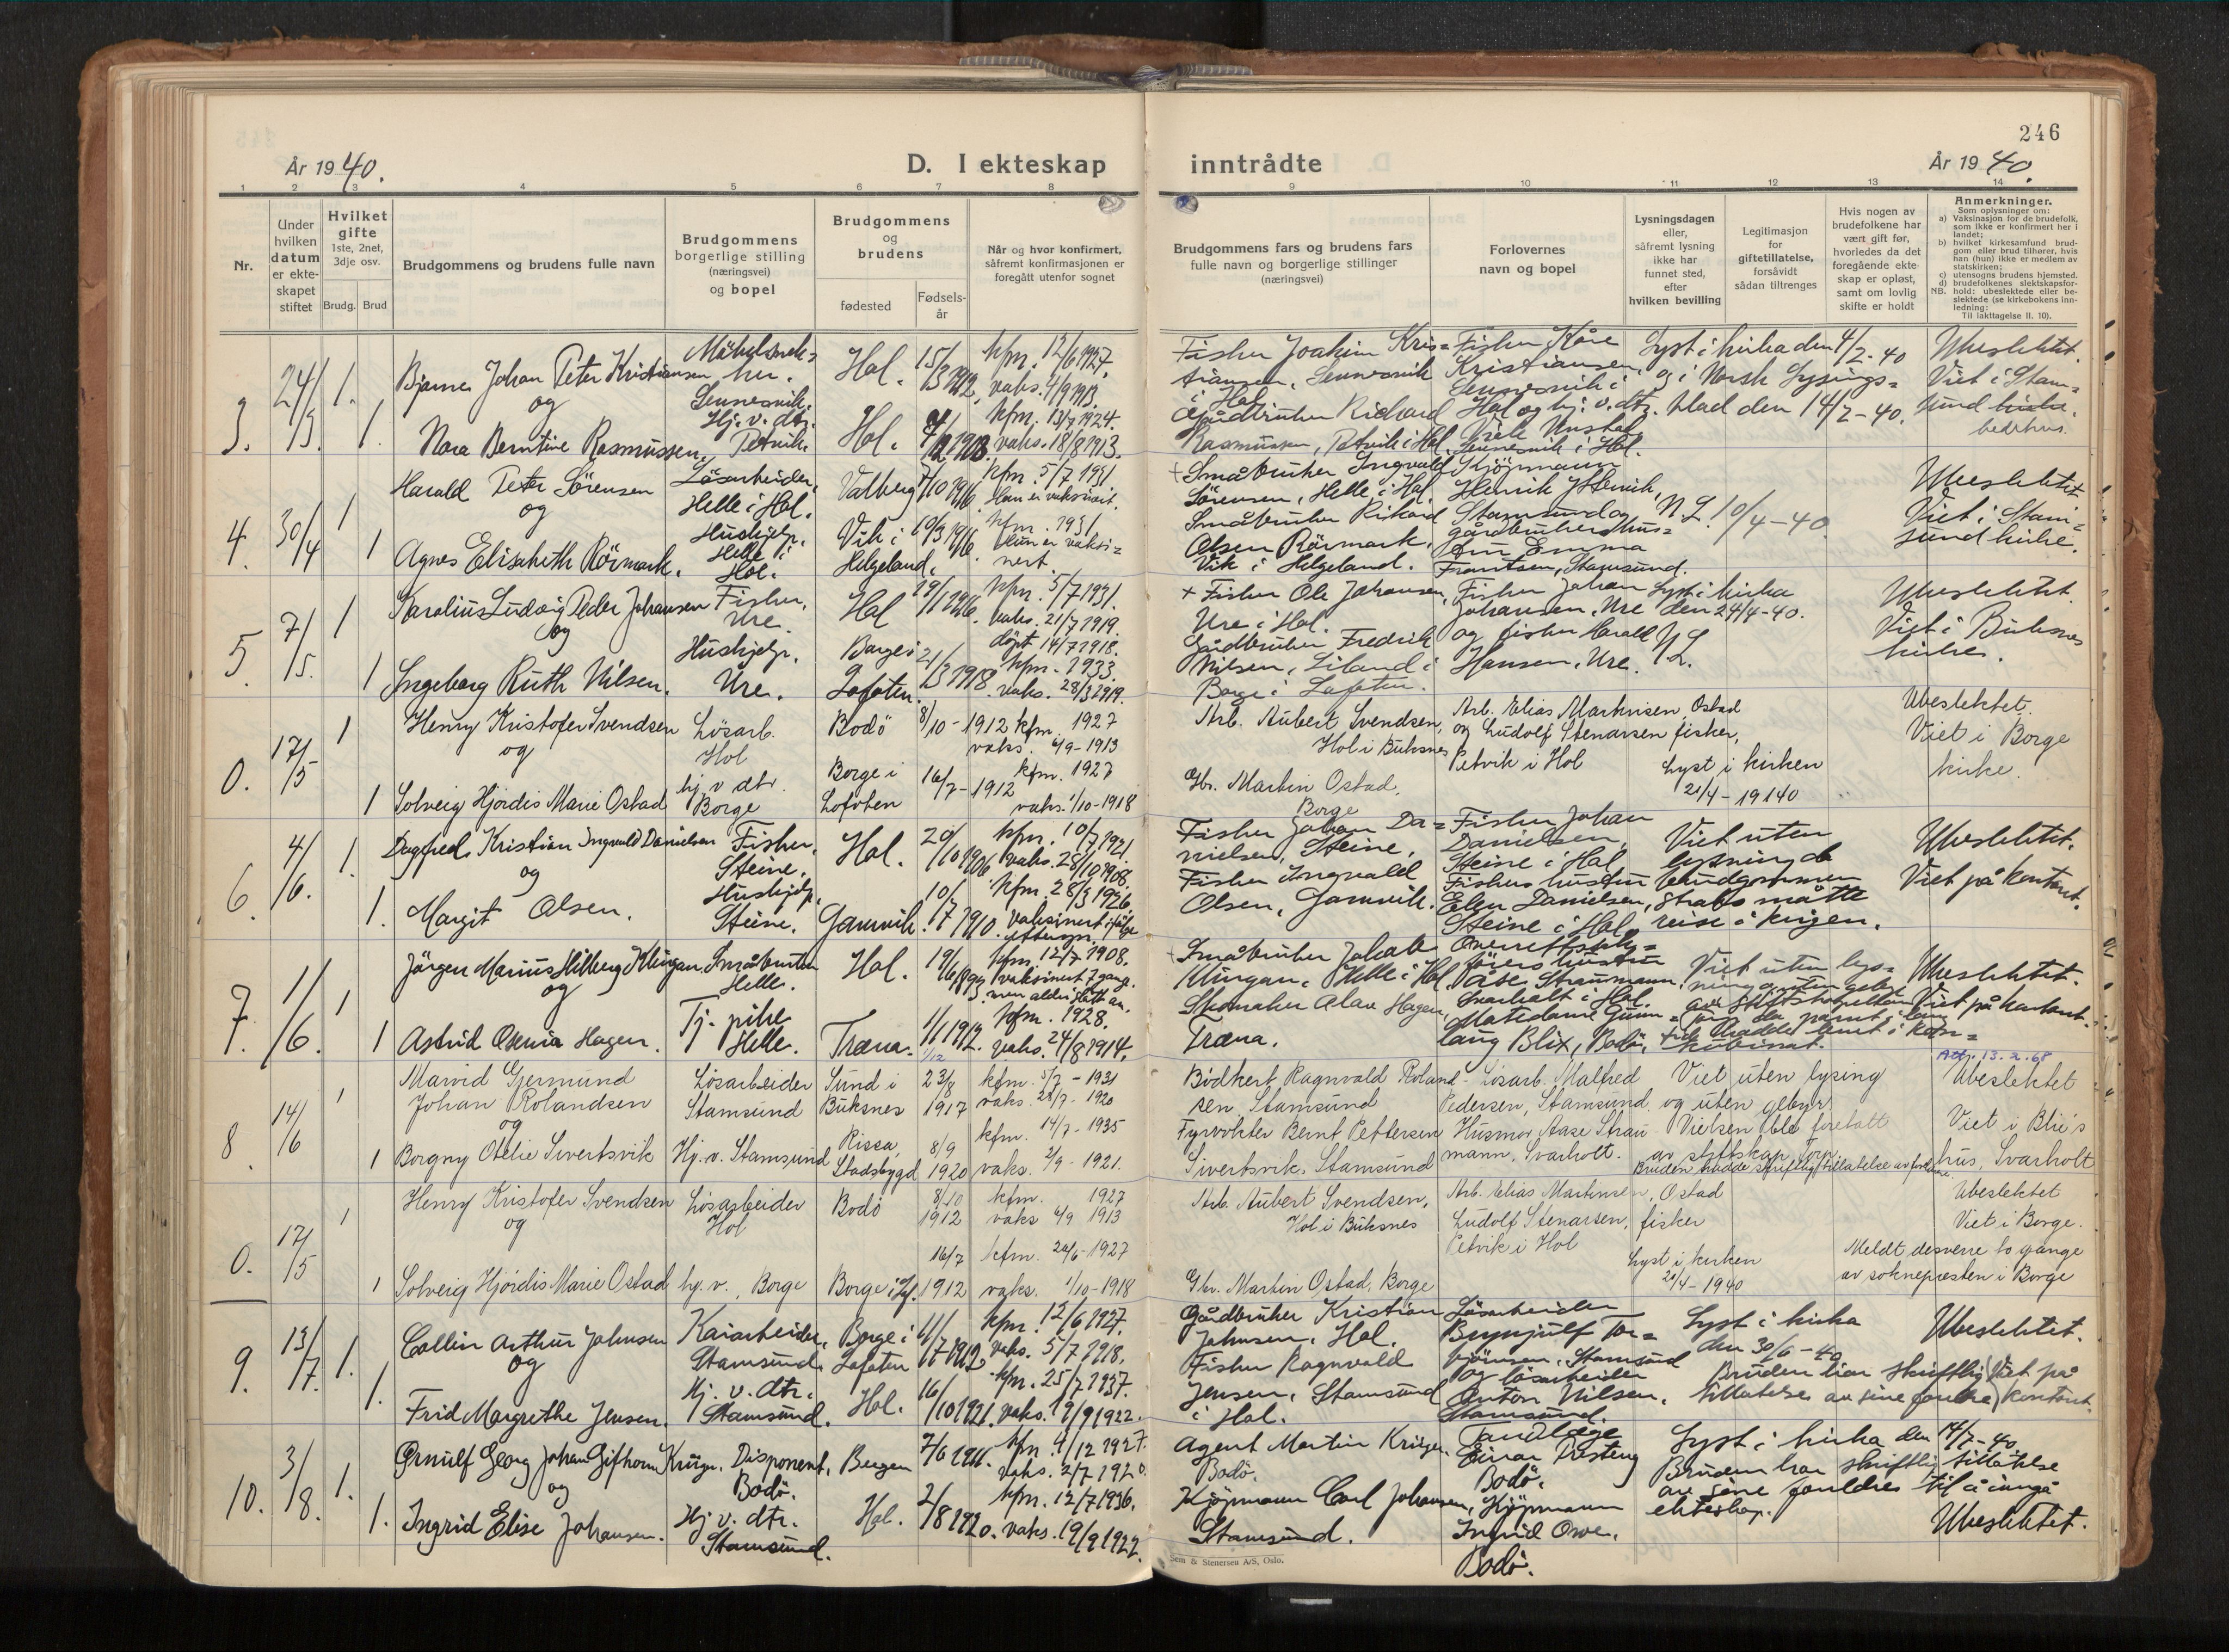 246
År 1940.
D. I ekteskap inntrådte
År 1940.
1 2 3 4 5 6 7 8 9 10 11 12 13 14
Nr.
Under hvilken datum er ekteskapet stiftet
Hvilket gifte
1ste, 2net, 3dje osv.
Brudg. Brud
Brudgommens og brudens fulle navn
Brudgommens borgerlige stilling (næringsvei) og bopel
Brudgommens og brudens
fødested
Fødsels-år
Når og hvor konfirmert, såfremt konfirmasjonen er foregått utenfor sognet
Brudgommens fars og brudens fars fulle navn og borgerlige stillinger (næringsvei)
Forlovernes navn og bopel
Lysningsdagen eller, såfremt lysning ikke har funnet sted, efter hvilken bevilling
Legitimasjon for giftetillatelse, forsåvidt sådan tiltrenges
Hvis nogen av brudefolkene har vært gift før, hvorledes da det foregående ekteskap er opløst, samt om lovlig skifte er holdt
Anmerkninger.
Som oplysninger om:
a) Vaksinasjon for de brudefolk, som ikke er konfirmert her i landet;
b) hvilket kirkesamfund brudgom eller brud tilhører, hvis han (hun) ikke er medlem av statskirken;
c) utensogns brudens hjemsted.
d) brudefolkenes slektskapsforhold: ubeslektede eller beslektede (se kirkebokens innledning:
NB.
Til iakttagelse II. 10).
3. 24/3. 1. Bjarne Johan Peter Kristiansen
Sennesvik. Hol. 15/3 1912, kfm. 12/6 1927. vaks. 4/9 1913.
og
1. Nora Berntine Rasmussen. Hj. v. dtr. Petvik. Hol. 1913. kfm. 13/7 1924. vaks. 18/8 1913.
Fisker Joakim Kristiansen, Sennesvik i Hol.
Gårdbruker Richard Rasmussen, Petvik i Hol.
Fisker Kåre Kristiansen, Sennesvik i Hol og hj. v. dtr. Unstad Sennesvik i Hol.
Lyst i kirka den 4/2-40 og i Norsk Lysingsblad den 14/2-40.
Ubeslektet.
Viet i Stamsund kirke. bedehus.
4. 30/4 1 Harald Peter Sörensen Lösarbeider, Helle i Hol. Valberg 7/10 1916. kfm. 5/7 1931. Han er vaksinert.
og
1 Agnes Elisabeth Rörmark. Hushjelp. Helle i Hol. Vik i Helgeland. 19/3 1916. kfm. 1931. Hun er vaksinert.
+ Småbruker Ingvald Sörensen, Helle i Hol.
Småbruker Rikard Olsen Rörmark, Vik i Helgeland.
Kjöpmann Henrik Stamsund og gårdbrukerhustru Emma Frantsen, Stamsund.
N.L. 10/4-40.
Ubeslektet
Viet i Stamsund kirke.
5. 7/5. 1 Karolius Ludvig Peder Johansen Fisker, Ure. Hol 19/1 1916. kfm. 5/7 1931. vaks. 21/7 1919.
og döpt 14/7 1918.
1 Ingeborg Ruth Nilsen. Hushjelp. Ure. Borge i Lofoten. 21/3 1918. kfm. 1933. vaks. 28/3 1919.
+ Fisker Ole Johansen, Ure i Hol.
Gårdbruker Fredrik Nilsen, Liland i Borge i Lofoten.
Fisker Johan Johansen, Ure og fisker Harall Hansen, Ure.
Lyst i kirka den 24/4-40. N.L.
Ubeslektet.
Viet i Buksnes kirke.
0. 17/5 1 Henry Kristofer Svendsen Lösarb. Hol Bodö 8/10-1912 kfm. 1927 vaks. 4/9-1913
og
1 Solveig Hjördis Marie Ostad hj. v dtr. Borge Borge i Lofoten 16/7-1912 kfm. 1927 vaks. 1/10-1918
Arb. Aubert Svendsen, Hol i Buksnes
Gbr. Martin Ostad, Borge
Arb. Elias Martinsen Ostad og Ludolf Stenarsen fisker, Petvik i Hol
Lyst i kirken 21/4-19140
Ubeslektet.
Viet i Borge kirke.
6. 4/6. 1. Dagfred Kristian Ingvald Danielsen Fisker, Steine. Hol. 20/10 1906 kfm. 10/7 1921. vaks. 28/10 1908.
og
1. Margit Olsen. Hushjelp, Steine. Gamvik. 10/7 1910. kfm. 28/3 1926. vaksinert ifölge attersyn.
Fisker Johan Danielsen, Steine,
Fisker Ingvald Olsen, Gamvik.
Fisker Johan Danielsen, Steine i Hol. Fiskerhustru Ellen Danielsen, Steine i Hol.
Viet uten lysning da brudgommen straks måtte reise i krigen.
Ubeslektet.
Viet på kontoret.
7. 1/6. 1 Jörgen Marius Hilberg Klingan, Småbruker Helle. Hol. 19/6 1894 kfm. 12/7 1908. vaksinert 2 gang. men aldri slått an.
og
1 Astrid Oxenia Hagen. Tj. pike Helle. Træna. 1/1 1912. 1/12 kfm. 1928. vaks. 24/8 1914.
+ Småbruker Jakob Klingan, Helle i Hol
Skomaker Olav Hagen, Træna.
Overrettssakförers hustru Åse Straumann, Svarholt i Hol. Matedame Gunnlaug Blix, Bodö.
Viet uten lysning
Ubeslektet.
Viet på kontoret.
8. 14/6 1 Marvid Gjermund Johan Rolandsen Lösarbeider Stamsund Sund i Buksnes 23/8 1917 kfm. 5/7-1931 vaks. 28/7-1920
og
1 Borgny Otelie Sivertsvik Hj. v. Stamsund Rissa, Stadsbygd 8/9 1920 kfm. 14/7-1935 vaks. 2/9-1921.
Bödker Ragnvald Rolandsen, Stamsund
Fyrvokter Bernt Pettersen Sivertsvik, Stamsund
Lösarb. Malfred Pedersen, Stamsund Husmor Aase Straumann, Svarholt.
Viet uten lysing og uten gebyr. Vielsen ble foretatt av stiftskap.
Bruden hadde skriftlig tillatelse av foreldrene.
Att. 13.2.68
Ubeslektet
Viet i Bliés hus, Svarholt
0. 17/5 1 Henry Kristofer Svendsen Lösarbeider Hol Bodö 8/10 1912 kfm. 1927 vaks 4/9 1913
og
1 Solveig Hjördis Marie Ostad hj. v., Borge Borge i Lof. 16/7 1912 kfm. 24/6-1927 vaks. 1/10-1918
Arb. Aubert Svendsen, Hol i Buksnes
Gbr. Martin Ostad, Borge
Arb. Elias Martinsen, Ostad
Ludolf Stenarsen, fisker Petvik i Hol
Lyst i kirken 21/4-1940
Ubeslektet
Viet i Borge.
Meldt desverre to gange av soknepresten i Borge
9. 13/7. 1. Collin Arthur Johnsen Kaiarbeider, Stamsund. Borge i Lofoten 11/7 1912 kfm. 12/6 1927. vaks. 5/7 1918.
og
1. Frid Margrethe Jensen. Hj. v. dtr. Stamsund. Hol. 16/10 1921. kfm. 25/7 1937. vaks. 19/9 1922.
Gårdbruker Kristian Johnsen, Hol.
Fisker Ragnvald Jensen, Stamsund i Hol.
Lösarbeider Brynjulf Torbjörnsen, Stamsund og lösarbeider Anton Nilsen, Stamsund.
Lyst i kirka den 30/6-40
Bruden har skriftlig tillatelse av sine foreldre
Ubeslektet.
Viet på kontoret
10. 3/8. 1. Ørnulf Georg Johan Gifthorn Krüger. Disponent, Bodö. Bergen 7/6 1911. kfm. 4/12 1927. vaks. 2/7 1920.
og
1. Ingrid Elise Johansen. Hj. v. dtr. Stamsund. Hol. 2/8 1920. kfm. 12/7 1936. vaks. 19/9 1922.
Agent Martin Krüger Bodö.
Kjöpmann Carl Johansen, Stamsund.
Tandlege Einar Bodö. Kjöpmann Ingrid Owe, Bodö.
Lyst i kirka den 14/7-40
Bruden har skriftlig tillatelse av sine foreldres til å inngå ekteskap.
Ubeslektet.
Sem & Stenersen A/S, Oslo.